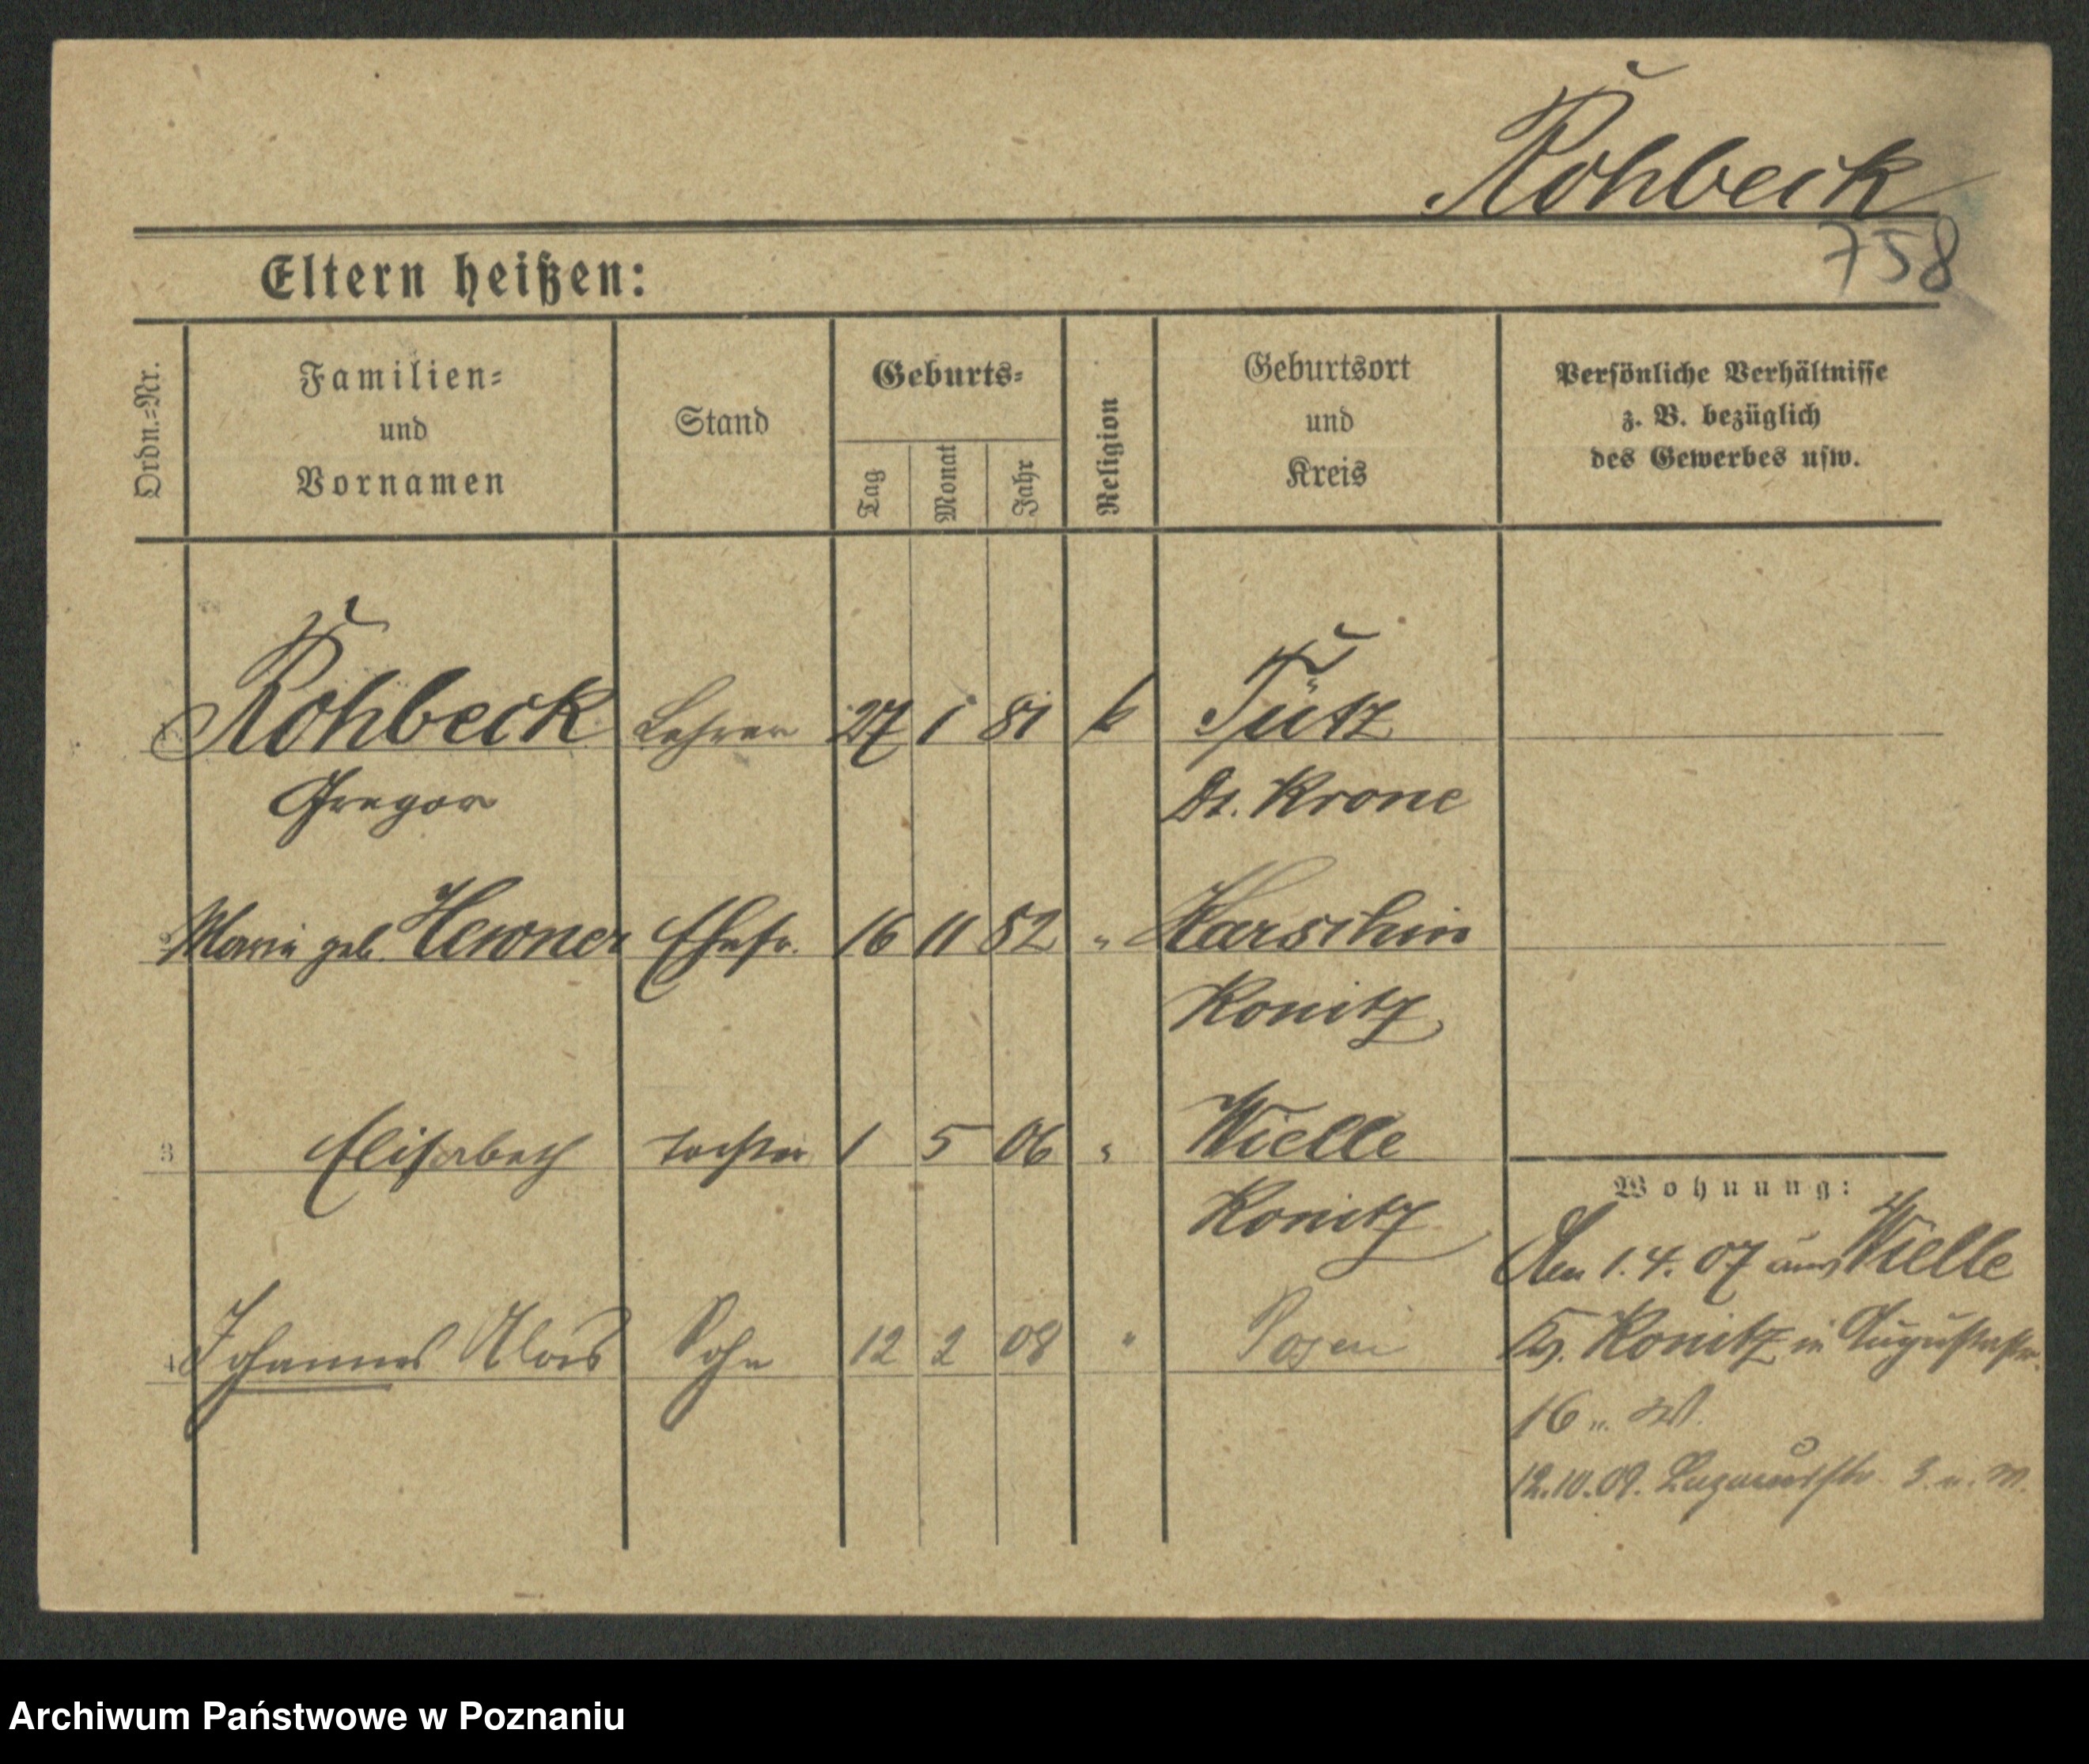 Rohbeck
758
Eltern heißen:
Ordn.=Nr.
Familien=
und
Vornamen
Stand
Geburts=
Tag
Monat
Jahr
Religion
Geburtsort
und
Kreis
Persönliche Verhältnisse
z. B. bezüglich
des Gewerbes usw.
Rohbeck Lehrer 27 1 81 k Tütz
Gregor Dt. Krone
2 Marie geb. Ehefr. 16 11 82 " Karschin
Konitz
3 Elisabeth Tochter 1 5 06 " Wielle
Konitz
4 Johannes Alois Sohn 12 2 08 " Posen
Wohnung:
Am 1.4.07 aus Wielle
Kr. Konitz in Augustastr.
16 W.
12.10.09. 3 W.
Archiwum Państwowe w Poznaniu